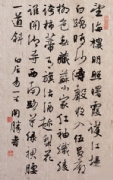 望海樓明照曙霞護江堤
白踏晴沙濤聲夜入伍員廟
柳色春藏蘇小家紅袖織綾
誇柿蒂青旗沽酒趁梨花
誰開湖寺西南路草綠裙腰
一道斜 白居易